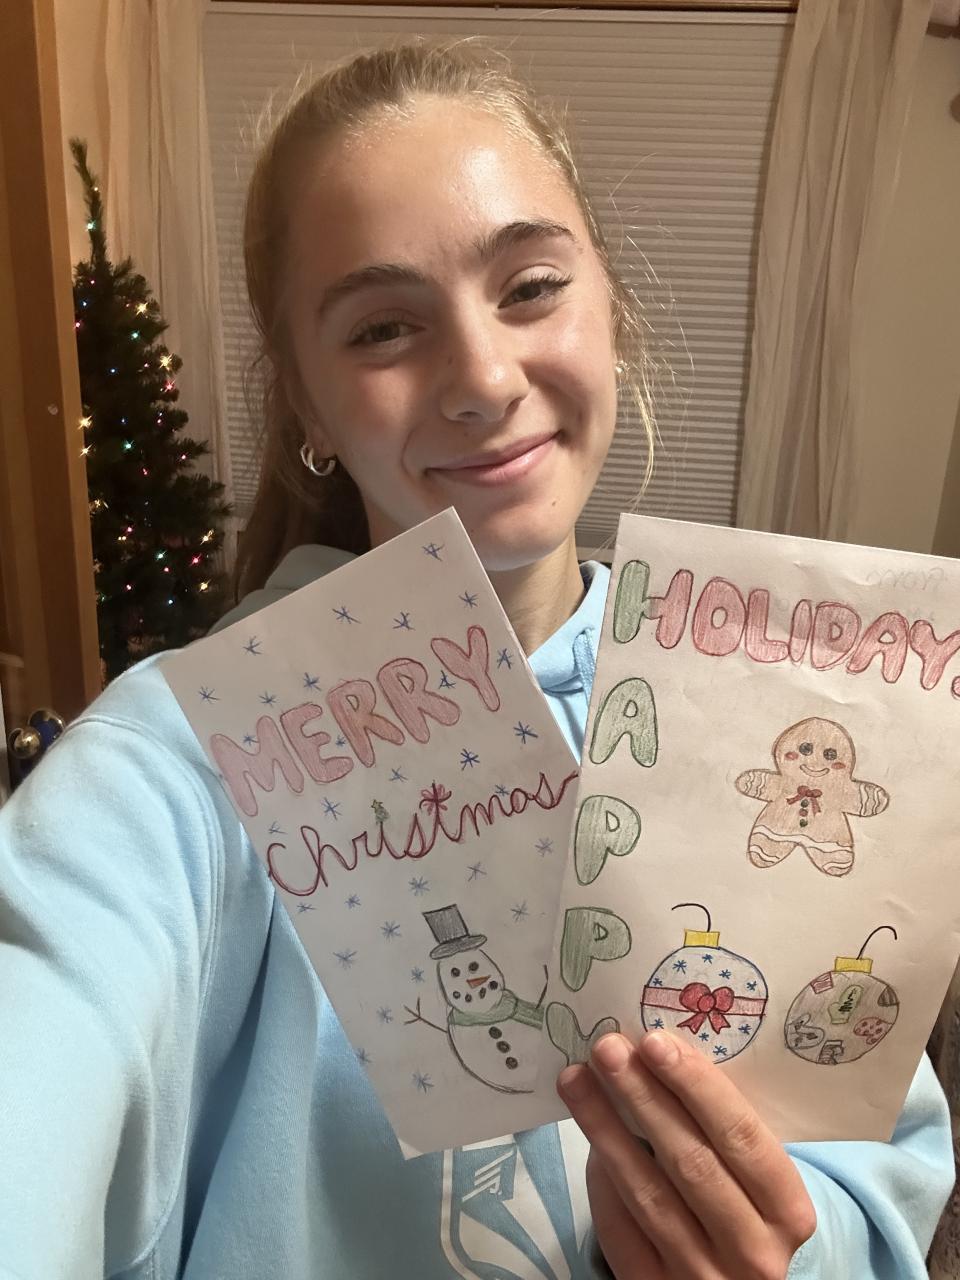 MERRY
Christmas
HOLIDAY
HAPPY